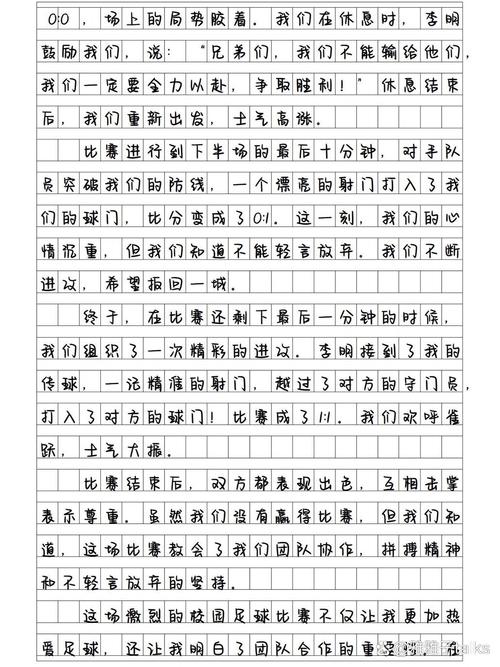 0:0，场上的局势胶着。我们在休息时，李明
鼓励我们，说：“兄弟们，我们不能输给他们，
我们一定要全力以赴，争取胜利！”休息结束
后，我们重新出发，士气高涨。
比赛进行到下半场的最后十分钟，对手队
员突破我们的防线，一个漂亮的射门打入了我
们的球门，比分变成了0:1。这一刻，我们的心
情沉重，但我们知道不能轻言放弃。我们不断
进攻，希望扳回一城。
终于，在比赛还剩下最后一分钟的时候，
我们组织了一次精彩的进攻。李明接到了我的
传球，一记精准的射门，越过了对方的守门员，
打入了对方的球门！比赛成了1:1。我们欢呼雀
跃，士气大振。
比赛结束后，双方都表现出色，互相击掌
表示尊重。虽然我们没有赢得比赛，但我们知
道，这场比赛教会了我们团队协作，拼搏精神
和不轻言放弃的坚持。
这场激烈的校园足球比赛不仅让我更加热
爱足球，还让我明白了团队合作的重要